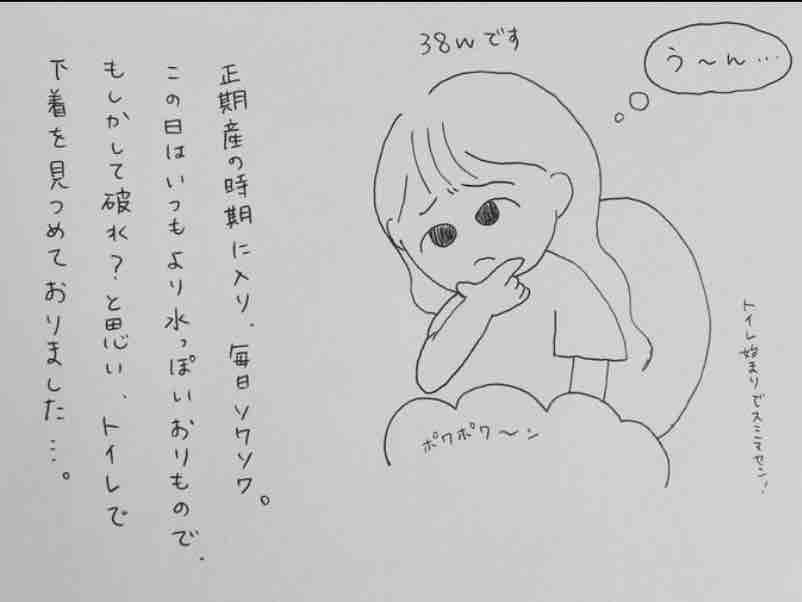 38wです
う〜ん…
正期産の時期に入り、毎日ソワソワ。
この日はいつもより水っぽいおりもので、
もしかして破水?と思い、トイレで
下着を見つめておりました…。
ポワポワ〜ン
トイレ始まりでスミマセン!